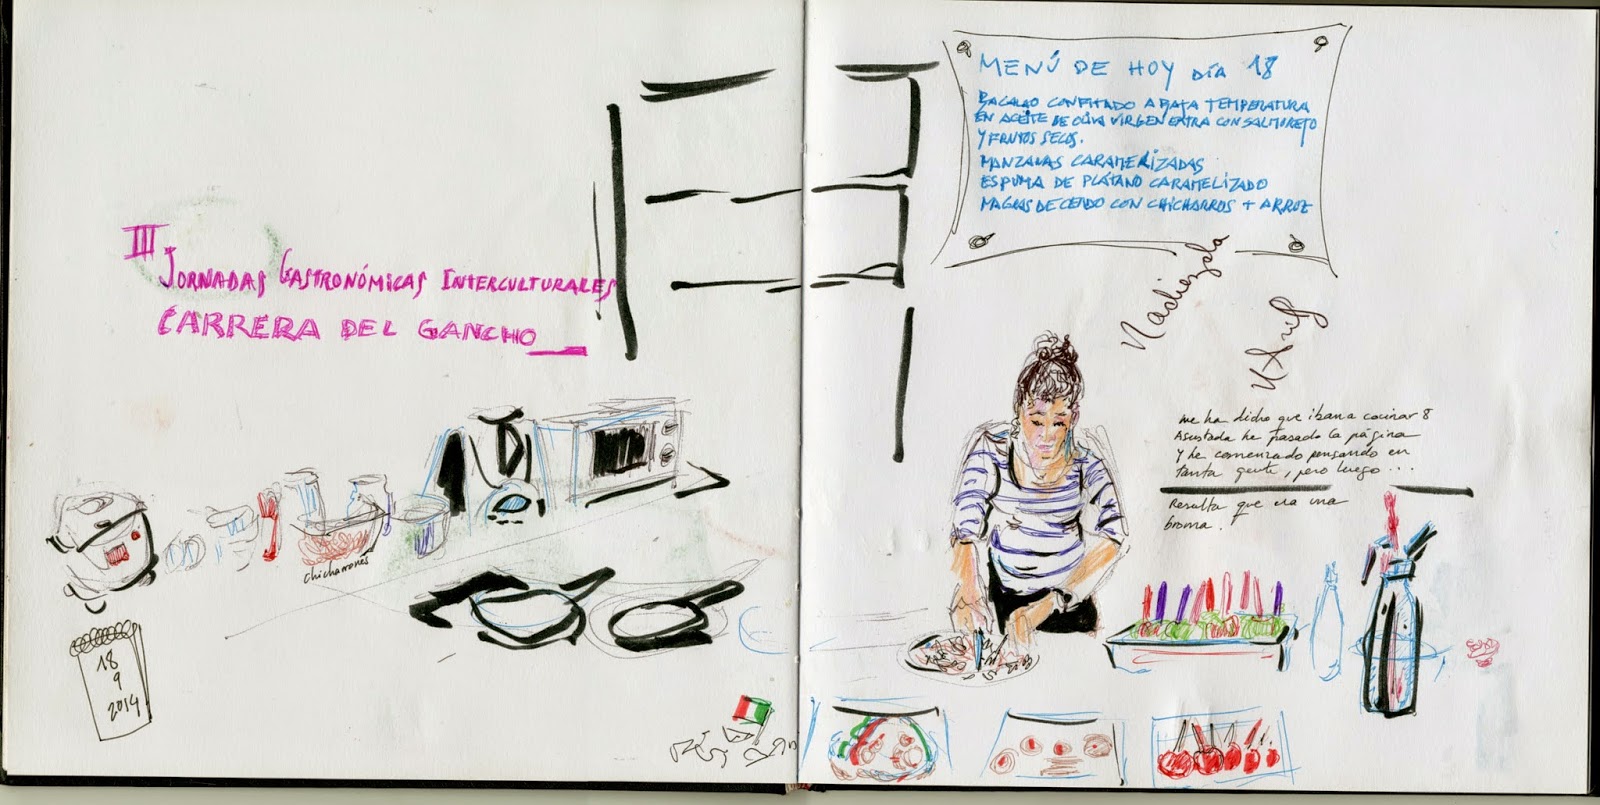 III
JORNADAS GASTRONÓMICAS INTERCULTURALES
CARRERA DEL GANCHO
chicharrones
18
9
2014
MENÚ DE HOY DÍA 18
BACALAO CONFITADO A BAJA TEMPERATURA
EN ACEITE DE OLIVA VIRGEN EXTRA CON SALMOREJO
Y FRUTOS SECOS.
MANZANAS CARAMELIZADAS
ESPUMA DE PLÁTANO CARAMELIZADO
MAGRAS DE CERDO CON CHICHARROS + ARROZ
Nadiezda
me ha dicho que iban a cocinar 8
Asustada he pasado la página
y he comenzado pensando en
tanta gente, pero luego ...
Resulta que era una
broma.